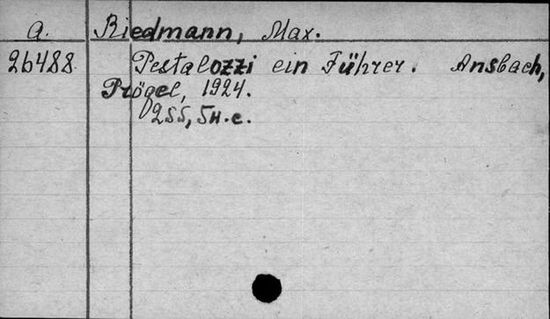 A. Riedmann, Max.
26488 Pestalozzi ein Führer. Ansbach,
Prögel, 1924.
255, 5н.с.